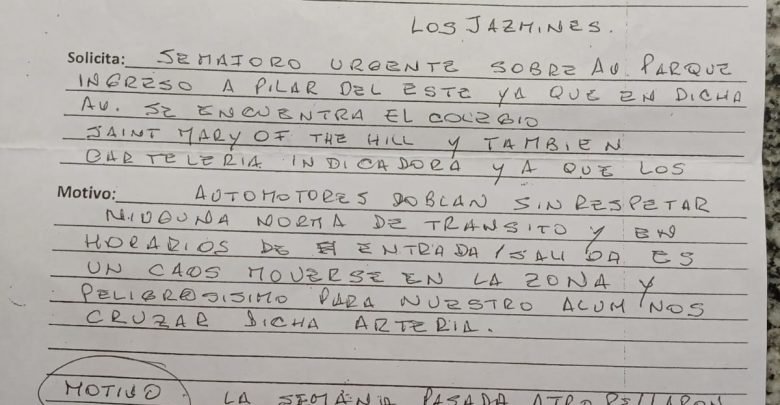 LOS JAZMINES.
Solicita: SEMAFORO URGENTE SOBRE AV. PARQUE
INGRESO A PILAR DEL ESTE YA QUE EN DICHA
AV. SE ENCUENTRA EL COLEGIO
SAINT MARY OF THE HILL Y TAMBIEN
CARTELERIA INDICADORA YA QUE LOS
Motivo: AUTOMOTORES DOBLAN SIN RESPETAR
NINGUNA NORMA DE TRANSITO Y EN
HORARIOS DE ENTRADA/SALIDA ES
UN CAOS MOVERSE EN LA ZONA Y
PELIGROSISIMO PARA NUESTRO ALUMNOS
CRUZAR DICHA ARTERIA.
MOTIVO LA SEMANA PASADA ATROPELLARON